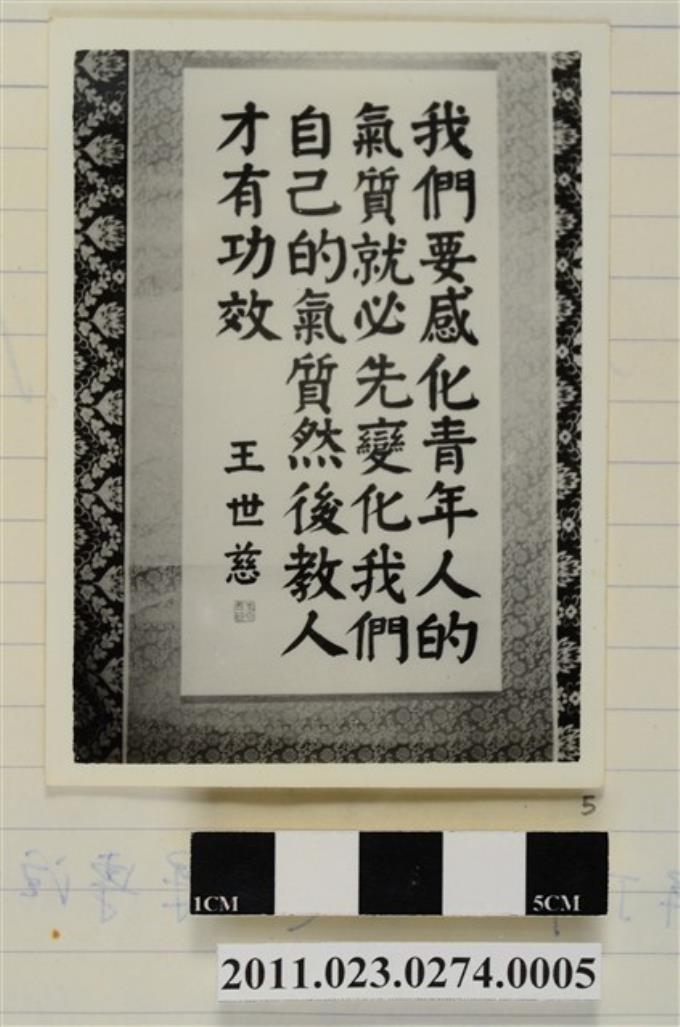 我們要感化青年人的
氣質就必先變化我們
自己的氣質然後教人
才有功效
王世慈
5
1CM 5CM
2011.023.0274.0005